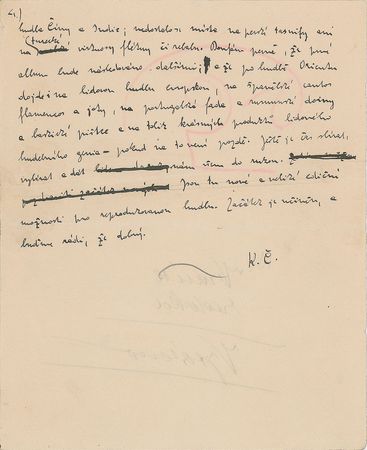 4.)
hudba Číny a Indie; nedostalo se místa na perští tasnify ani
(turecké)
na virtuosy flétny či rebabu. Doufám pevně, že první
album bude následováno dalšími; a že po hudbě Orientu
dojde i na lidovou hudbu evropskou, na španělské cantos
flamencos a joty, na portugalské fada a rumunské doiny
a baskické písně a na tolik krásných produktů lidového
hudebního genia – pokud na to není pozdě. Ještě je čas sbírat,
vybírat a dát nám všem do rukou.
Jsou tu nové a veliké ediční
možnosti pro reprodukovanou hudbu. Začátek je učiněn, a
buďme rádi, že dobrý.
K. Č.